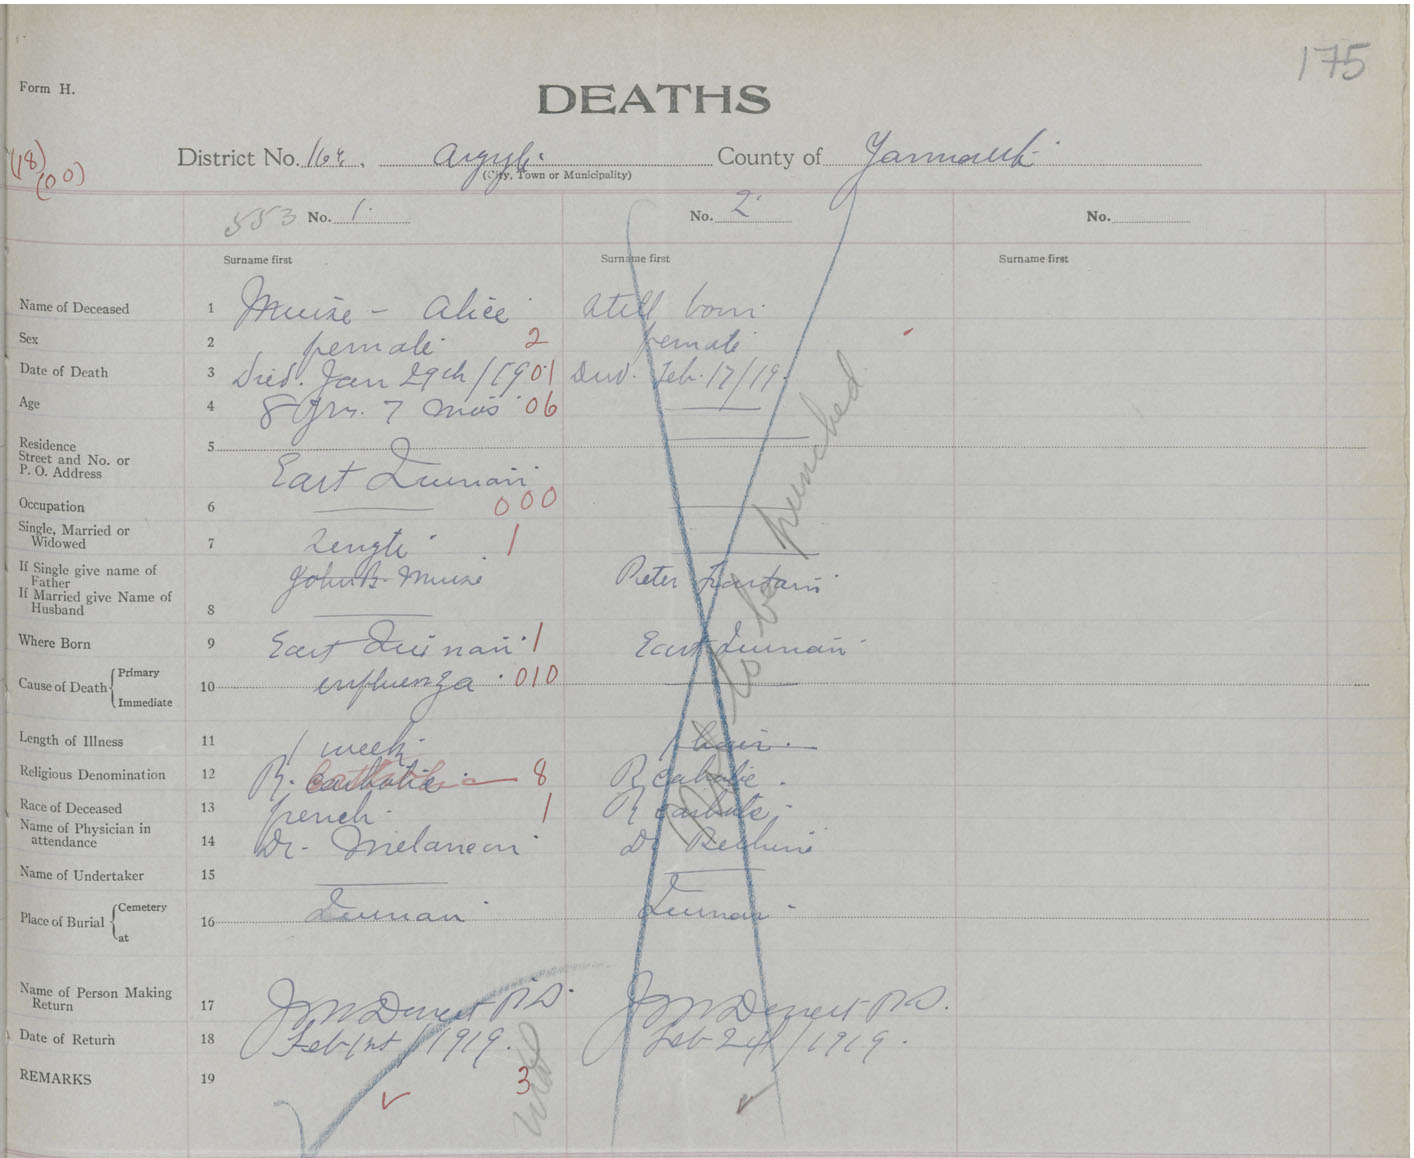 175
Form H.
DEATHS
(18)
(00)
District No. 164. Argyle County of Yarmouth
(City, Town or Municipality)
553 No. 1 No. 2 No.
Surname first Surname first Surname first
Name of Deceased 1 Muise - Alice Still born
Sex 2 female 2 female
Date of Death 3 Died. Jan 29th/19 01 Died. Feb. 17/19.
Age 4 8 Yrs. 7 mos 06
Residence
Street and No. or
P. O. Address 5 East Quinan
Occupation 6 000
Single, Married or
Widowed 7 Single 1
If Single give name of
Father John B. Muise Peter
If Married give Name of
Husband 8
Where Born 9 East Quinan 1 East Quinan
Cause of Death { Primary
Immediate 10 influenza 010
Length of Illness 11 1 week
Religious Denomination 12 R. Catholic 8 R Catholic.
Race of Deceased 13 french 1 R Catholic
Name of Physician in
attendance 14 Dr. Melancon Dr
Name of Undertaker 15
Place of Burial { Cemetery
at 16 Quinan Quinan
Name of Person Making
Return 17 R.D. R.D.
Date of Return 18 Feb 1st/1919. Feb 24/1919.
REMARKS 19 3
to be punched